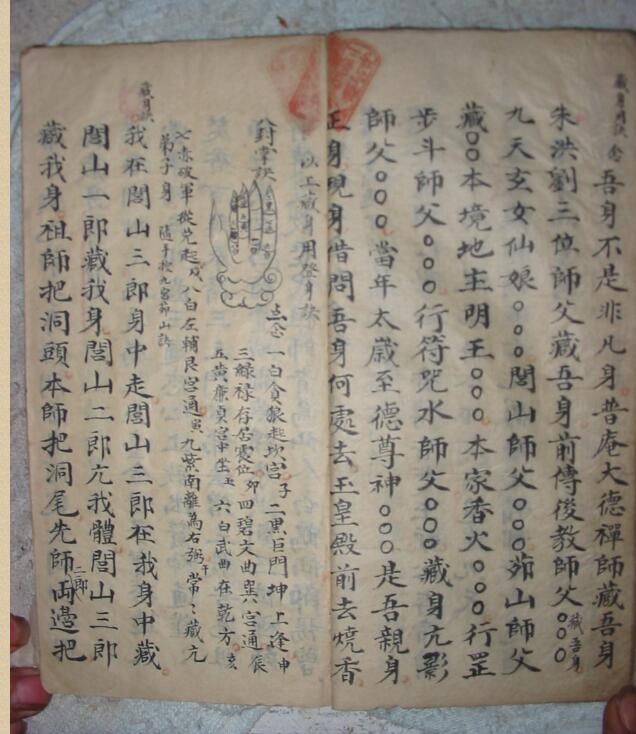 藏身用訣 念
吾身不是非凡身普庵大德禪師藏吾身
朱洪劉三位師父藏吾身前傳後教師父○○○藏吾身
九天玄女仙娘○○○閭山師父○○○茆山師父
藏○○本境地主明王○○○本家香火○○○行罡
步斗師父○○○行符咒水師父○○○藏身亢影
師父○○○當年太歲至德尊神○○○是吾親身
正身現身借問吾身何處去玉皇殿前去燒香
以上藏身用
封掌訣
点念 一白貪狼起坎宮子 二黑巨門坤上逢申
三綠祿存居震位卯 四碧文曲巽宮通辰
五黃廉貞宮中坐 六白武曲在乾方亥
七赤破軍從兌起戌 八白左輔艮宮通寅 九紫南離為右弼午 常〻藏亢
弟子身 隨手捻九宮茆山訣
藏身訣
我在閭山三郎身中走閭山三郎在我身中藏
閭山一郎藏我身閭山二郎亢我體閭山三郎
藏我身祖師把洞頭本師把洞尾先師両邉把
二郎